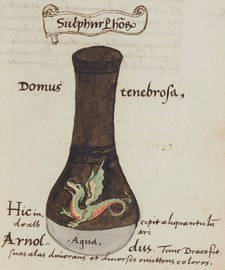 Sulphur
Domus tenebrosa.
Hic in cipit aliquantulū
dealb ari
Arnol Aqua, dus. Tunc Draco fit
suas alas devorans et diversos emittens colores.